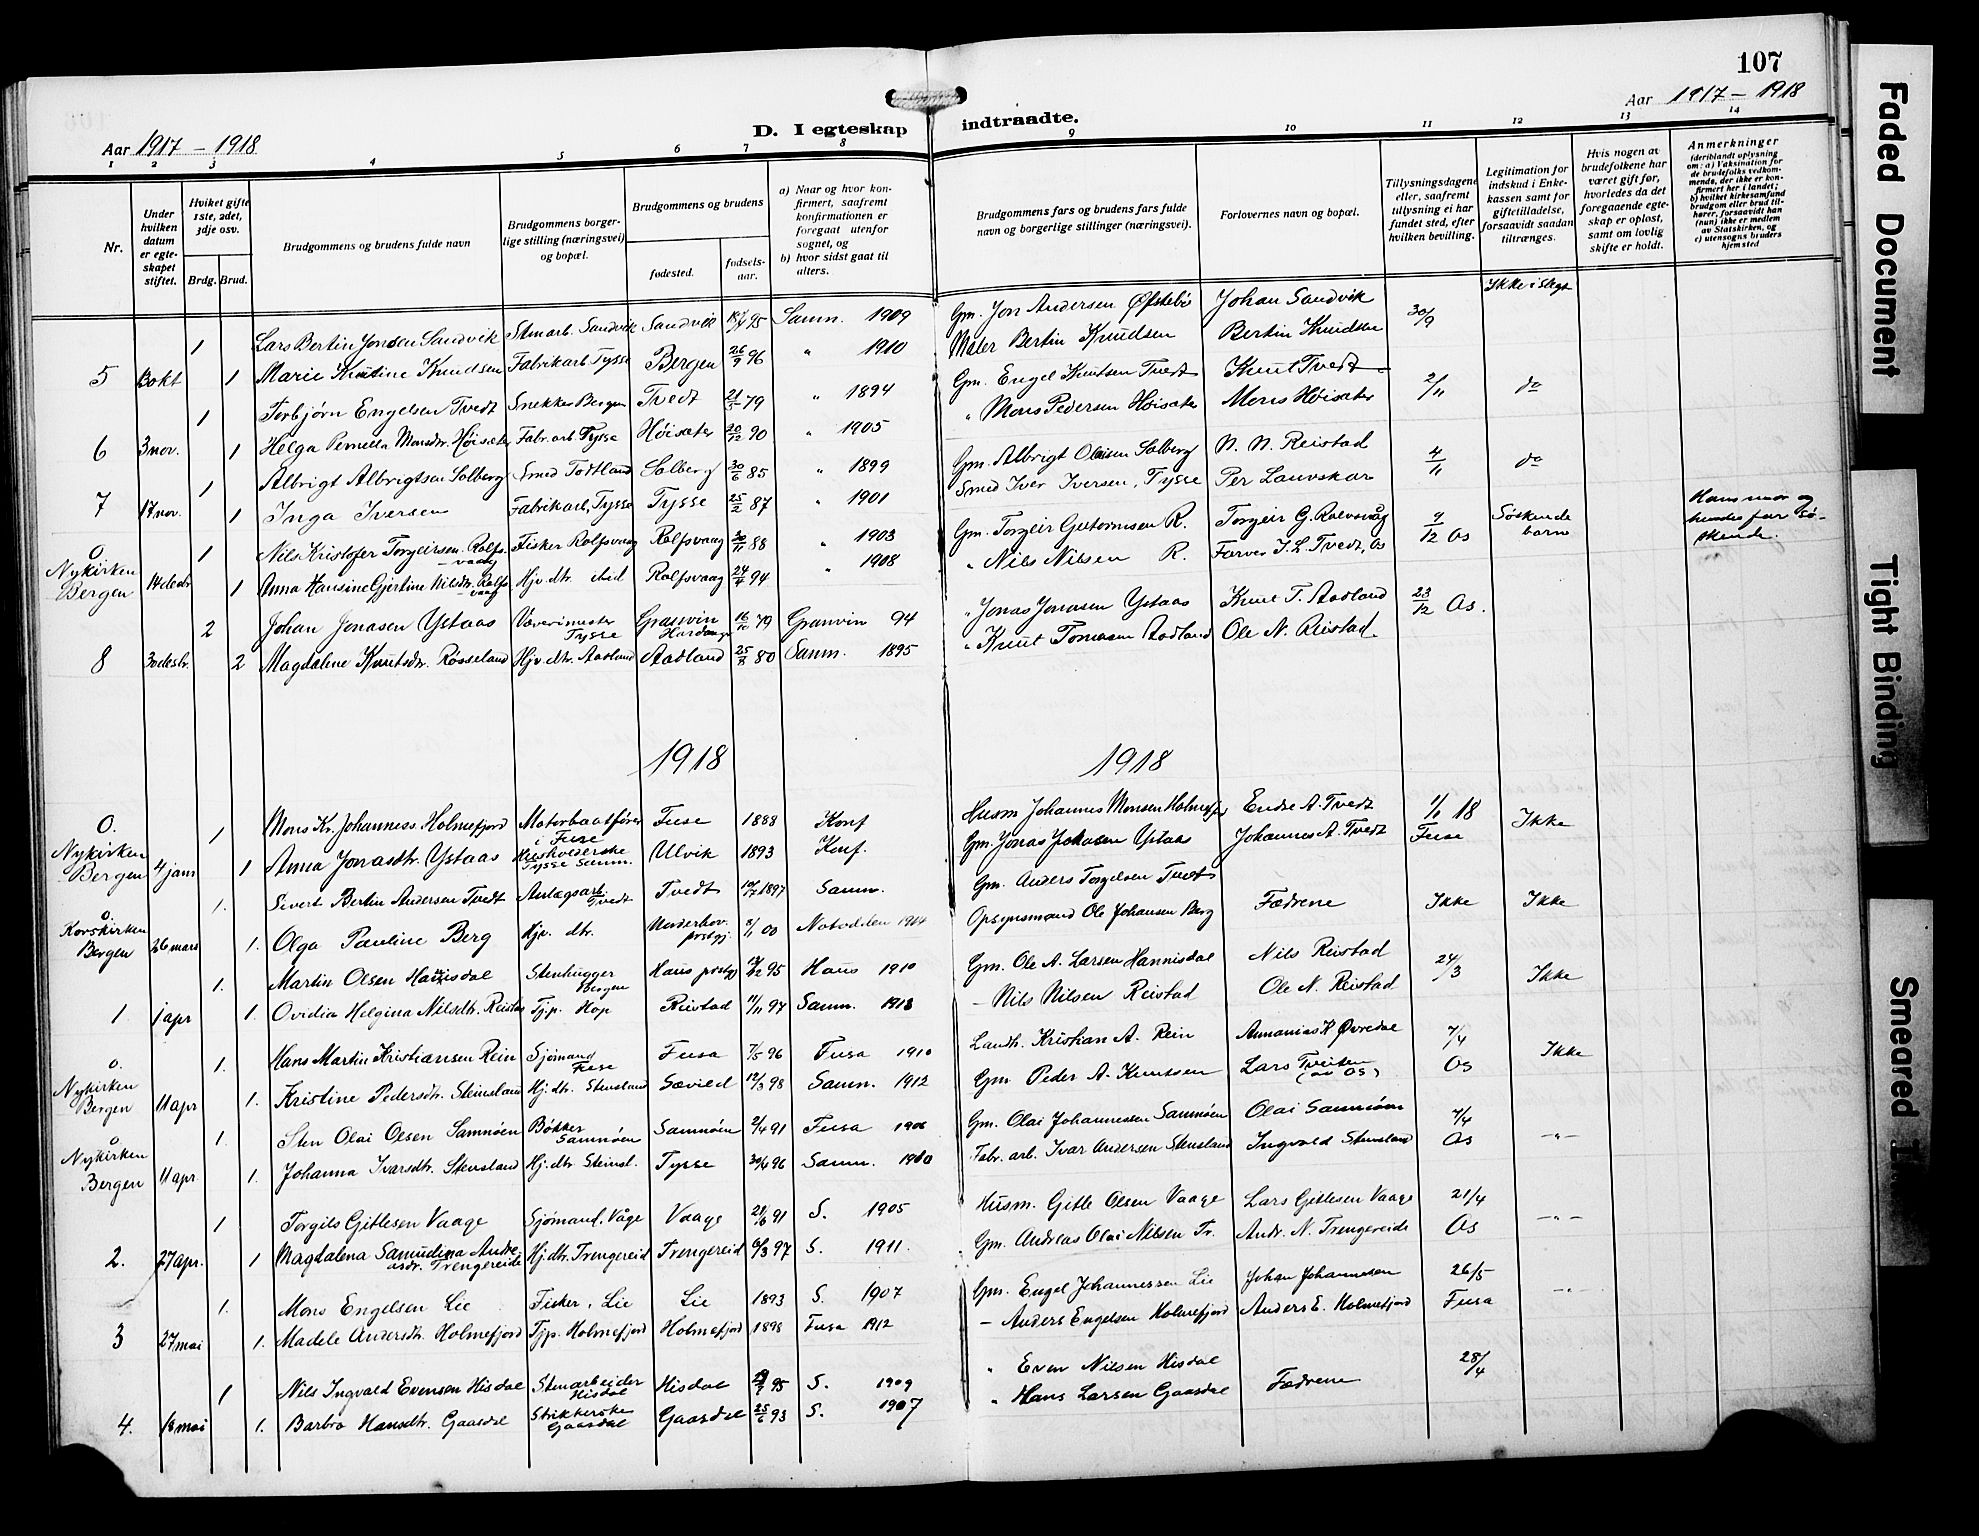 107
Aar 1917 – 1918
D. I egteskap indtraadte.
Aar 1917 – 1918
1 2 3 4 5 6 7 8 9 10 11 12 13 14
Nr.
Under hvilken datum er egteskapet stiftet.
Hviket gifte 1ste, 2det, 3dje osv.
Brdg. Brud.
Brudgommens og brudens fulde navn
Brudgommens borgerlige stilling (næringsvei) og bopæl.
Brudgommens og brudens
fødested.
fødselsaar.
a) Naar og hvor konfirmert, saafremt konfirmationen er foregaat utenfor sognet, og
b) hvor sidst gaat til alters.
Brudgommens fars og brudens fars fulde navn og borgerlige stillinger (næringsvei).
Forlovernes navn og bopæl.
Tillysningsdagene eller, saafremt tillysning ei har fundet sted, efter hvilken bevilling.
Legitimation for indskud i Enkekassen samt for giftetilladelse, forsaavidt saadan tiltrænges.
Hvis nogen av brudefolkene har været gift før, hvorledes da det foregaaende egteskap er opløst, samt om lovlig skifte er holdt.
Anmerkninger (deriblandt oplysning om: a) Vaksination for de brudefolks vedkommende, der ikke er konfirmert her i landet; b) hvilket kirkesamfund brudgom eller brud tilhører, forsaavidt han (hun) ikke er medlem av Statskirken, og c) utensogns bruders hjemsted
1 Lars Bertin Jonsen Sandvik Stenarb. Sandvik Sandvik 95 Samn. 1909 Gm. Jon Andersen Øfstebö Johan Sandvik 30/9 Ikke i slegt
5 13 okt 1 Marie Kristine Knudsen Fabrikarb. Tysse Bergen 26/9 96 " 1910 Maler Bertin Knudsen Bertin Knudsen
1 Torbjørn Engelsen Tvedt Snekker Bergen Tvedt 79 " 1894 Gm. Engel Knutsen Tvedt Knut Tvedt 2/11 do
6 3 nov. 1 Helga Pernella Monsdtr. Høisæter Fabr. arb. Tysse Høisæter 20/12 90 " 1905 " Mons Pedersen Høisæter Mons Høisæter
1 Albrigt Albrigtsen Solberg Smed Todtland Solberg 30/6 85 " 1899 Gm. Albrigt Olsen Solberg N. N. Reistad 4/11 do
7 17 nov. 1 Inga Iversen Fabrikarb. Tysse Tysse 25/2 87 " 1901 Smed Iver Iversen, Tysse Per Lauvskar
0 1 Nils Kristofer Torgeirsen Rolfsvaag Fisker Rolfsvaag Rolfsvaag 30/11 88 " 1903 Gm. Torgeir Guttormsen R. Torgeir G. Rolvsvåg 9/12 Os Søskendebarn Hans mor og hendes far søskende.
Nykirken Bergen 14 desbr 1 Anna Hansine Gjertine Nilsdtr. Rolfsvaag Hjv. dtr. ibid Rolfsvaag 94 " 1908 " Nils Nilsen R. Farver I. L. Tvedt, Os
2 Johan Jonasen Ystaas Vævermester Tysse Granvin Hardanger 79 Granvin 94 " Jonas Jonasen Ystaas Knut T. Aadland 23/12 Os.
8 30 desbr. 2 Magdalene Knutsdtr. Røsseland Hjv. dtr. Aadland Aadland 25/8 80 Samn. 1895 " Knut Tomasen Aadland Ole N. Reistad.
1918 1918
0. 1 Mons Kr. Johanness. Holmefjord Motorbaatfører i Fuse Fuse 1888 Konf Husm Johannes Monsen Holmefj Endre A. Tvedt 1/1 18 Ikke
Nykirken Bergen 4 jan 1 Anna Jonasdtr. Ystaas Husholderske Tysse Samn. Ulvik 1893 Konf. Gm. Jonas Johnsen Ystaas Johannes A. Tvedt Fuse
0 1. Sivert Bertin Andersen Tvedt Anlægsarb. Tvedt Tvedt 1897 Samn. Gm. Anders Torgelsen Tvedt Fædrene Ikke Ikke
Korskirken Bergen 26 mars 1. Olga Pauline Berg Hjv. dtr. 00 Notodden 1914 Opsynsmand Ole Johansen Berg
1. Martin Olsen Hannisdal Stenhugger Bergen Haus prstgj 95 Haus 1910 Gm. Ole A. Larsen Hannisdal Nils Reistad 24/3 Ikke
1 1 apr 1. Ovidia Helgina Nilsdtr. Reistad Tjp. Hop Reistad 11/11 97 Samn. 1913 – Nils Nilsen Reistad Ole N. Reistad
0. 1. Hans Martin Kristiansen Rein Sjömand Fuse Fusa 7/5 96 Fusa 1910 Landh. Kristian A. Rein Annanias K Øvredal 7/4 Ikke
Nykirken Bergen 11 apr 1. Kristine Pedersdtr. Stensland Hj. dtr. Stensland Sævild 12/3 98 Samn. 1912 Gm Peder A. Knutsen Lars Tveiten (av Os) Os
0 1. Sten Olai Olsen Samnøen Bøkker Samnøen Samnøen 2/4 91 Fusa 1906 Gm. Olai Johannessen Samnøen Olai Samnöen 7/4 –"–
Nykirken Bergen 11 apr 1. Johanna Ivarsdtr. Stensland Hj. dtr. Steinsl. Tysse 96 Samn. 1910 Fabr. arb. Ivar Andersen Stensland Ingvald Stensland Os
1 Torgils Gitlesen Vaage Sjömand. Våge Vaage 21/6 91 S. 1905 Husm. Gitle Olsen Vaage Lars Gitlesen Vaage 21/4 –"–
2. 27 apr. 1 Magdalena Samudina Andreasdr. Trengereide Hj. dtr. Trengereid Trengereid 6/3 97 S. 1911. Gm. Andreas Olai Nilsen Tr. Andr. N. Trengereide Os
1. Mons Engelsen Lie Fisker, Lie Lie 1893 S. 1907 Gm. Engel Johannessen Lie Johan Johannesen 26/5 –"–
3 27 mai 1. Madele Andersdtr. Holmefjord Tjp. Holmefjord Holmefjord 1898 Fusa 1912 – Anders Engelsen Holmefjord Anders E. Holmefjord Fusa
1 Nils Ingvald Evensen Hisdal Stenarbeider Hisdal Hisdal 95 S. 1909 " Even Nilsen Hisdal Fædrene 28/4
4. 18 mai 1. Barbra Hansdtr. Gaasdal Strikkerske Gaasdal Gaasdal 25/6 93 S. 1907 " Hans Larsen Gaasdal
Faded Document
Tight Binding
Smeared